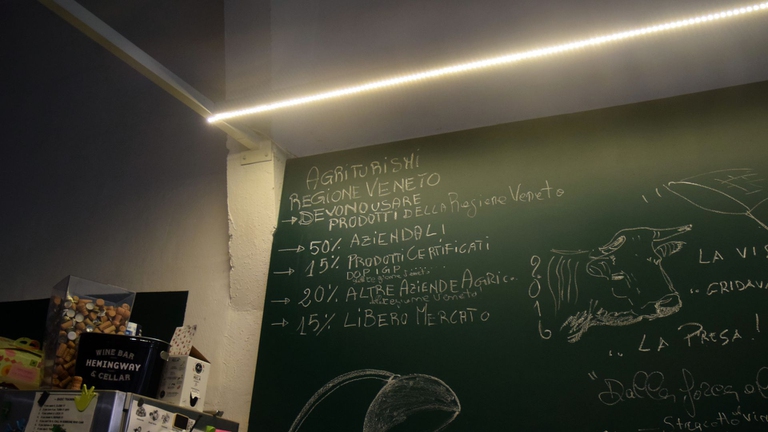 AGRITURISMI
REGIONE VENETO
→ DEVONO USARE
PRODOTTI DELLA Regione Veneto
→ 50% AZIENDALI
→ 15% PRODOTTI CERTIFICATI
DOP IGP
→ 20% ALTRE AZIENDE AGRIC.
della regione Veneto
→ 15% LIBERO MERCATO
2016
LA
"GRIDAVA
"LA PRESA!"
"Dalla forza
WINE BAR
HEMINGWAY
& CELLAR